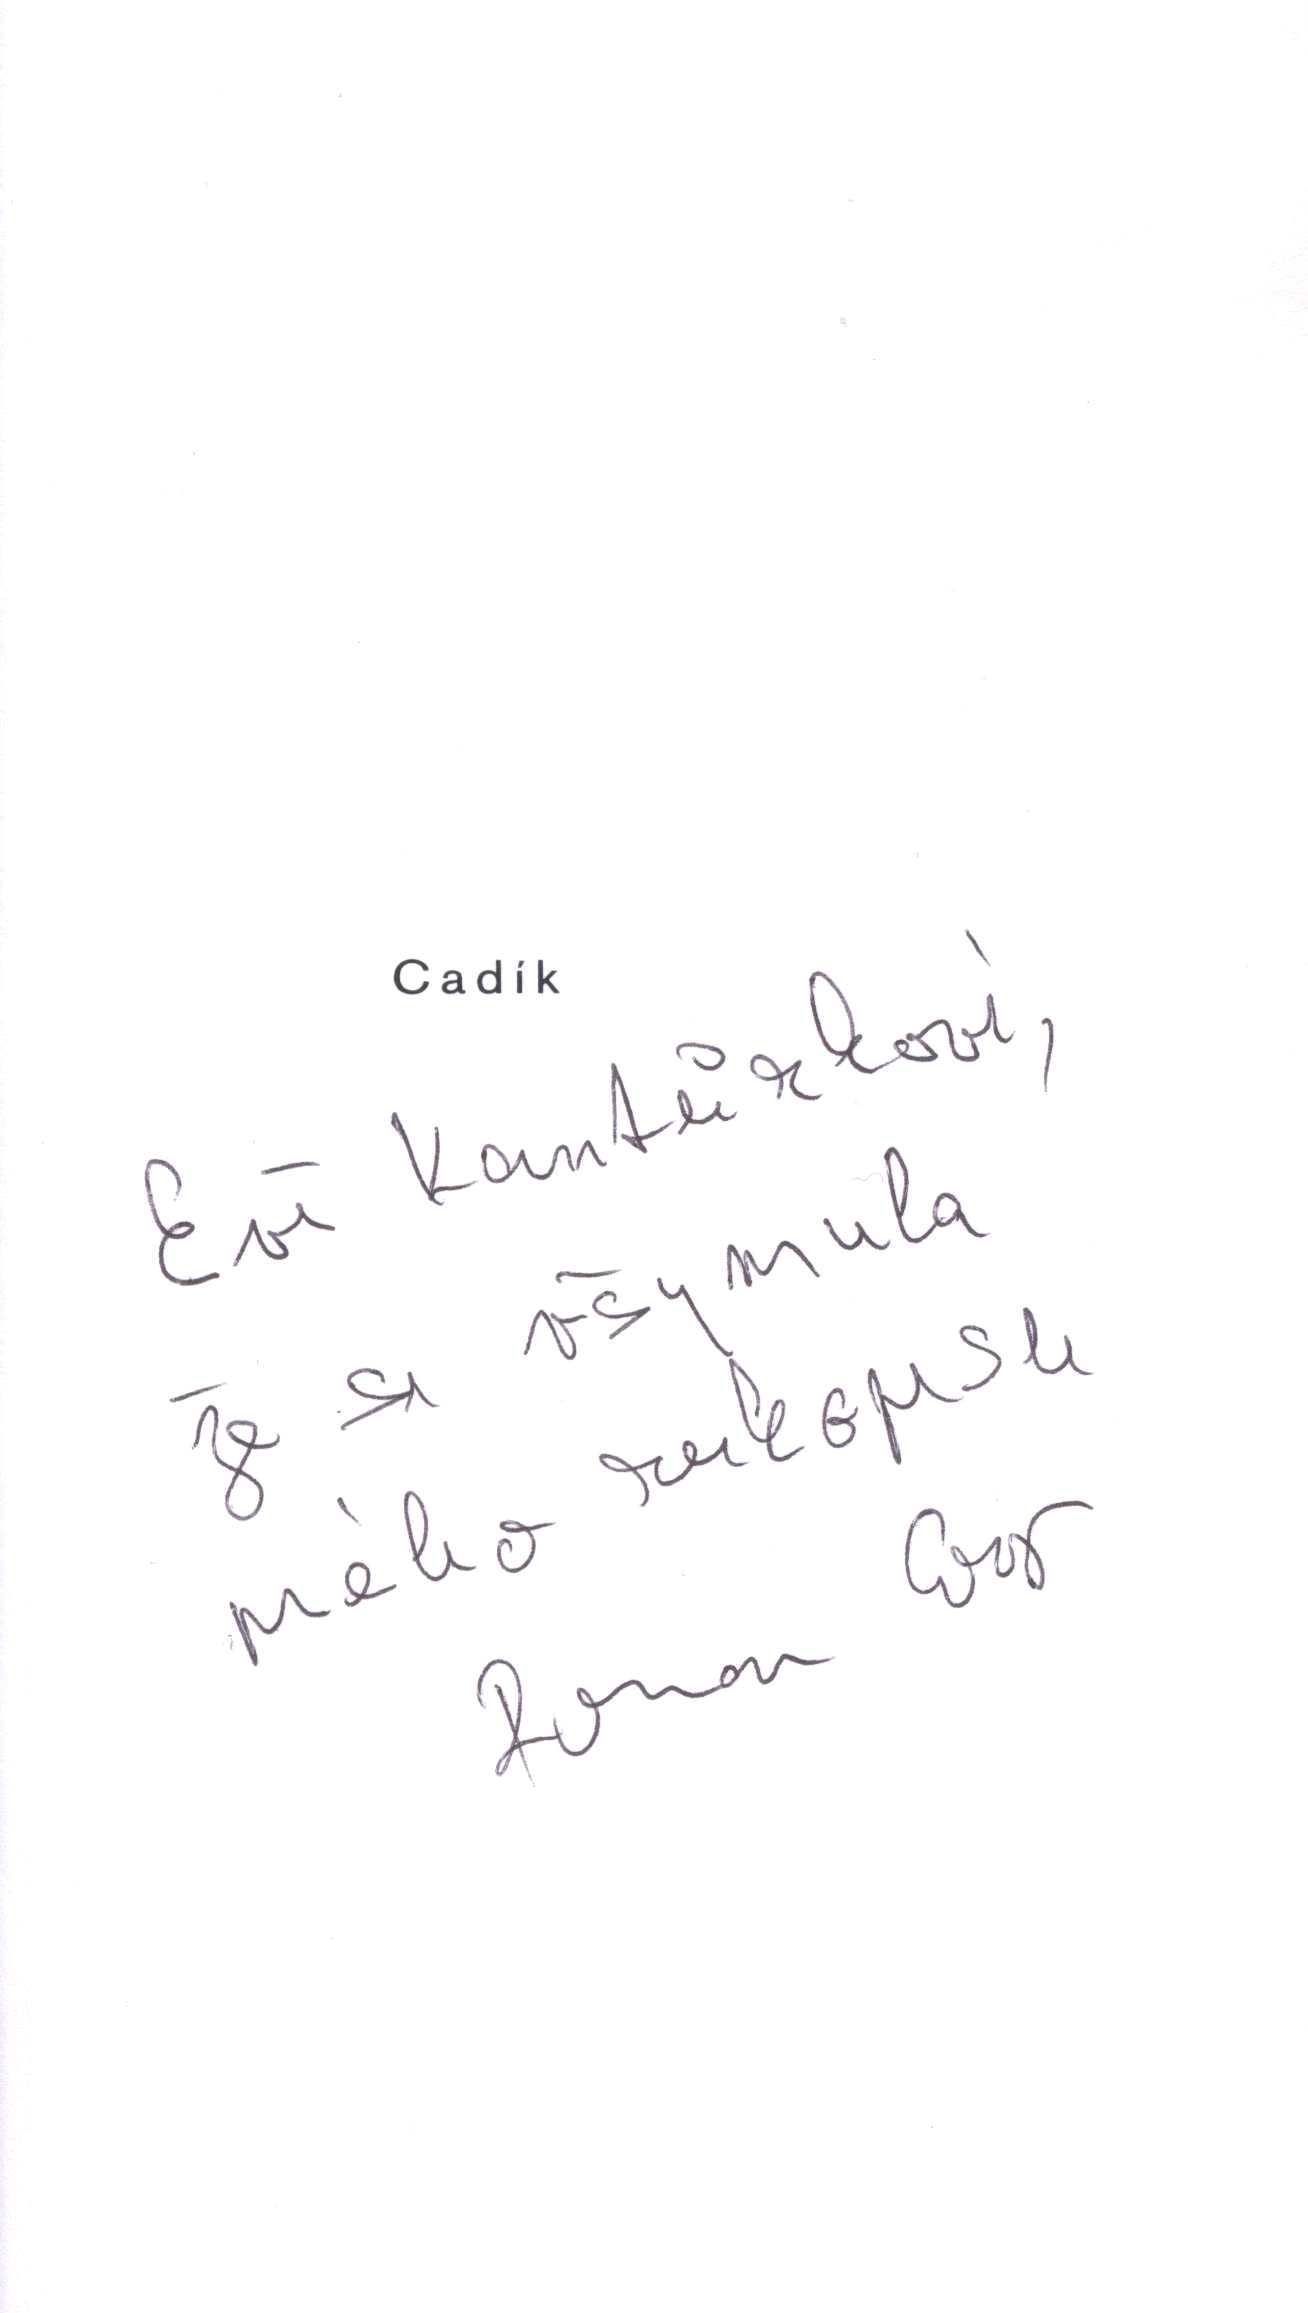 Cadík
Evě Kantůrkové,
že si všymula
mého rukopisu
Roman